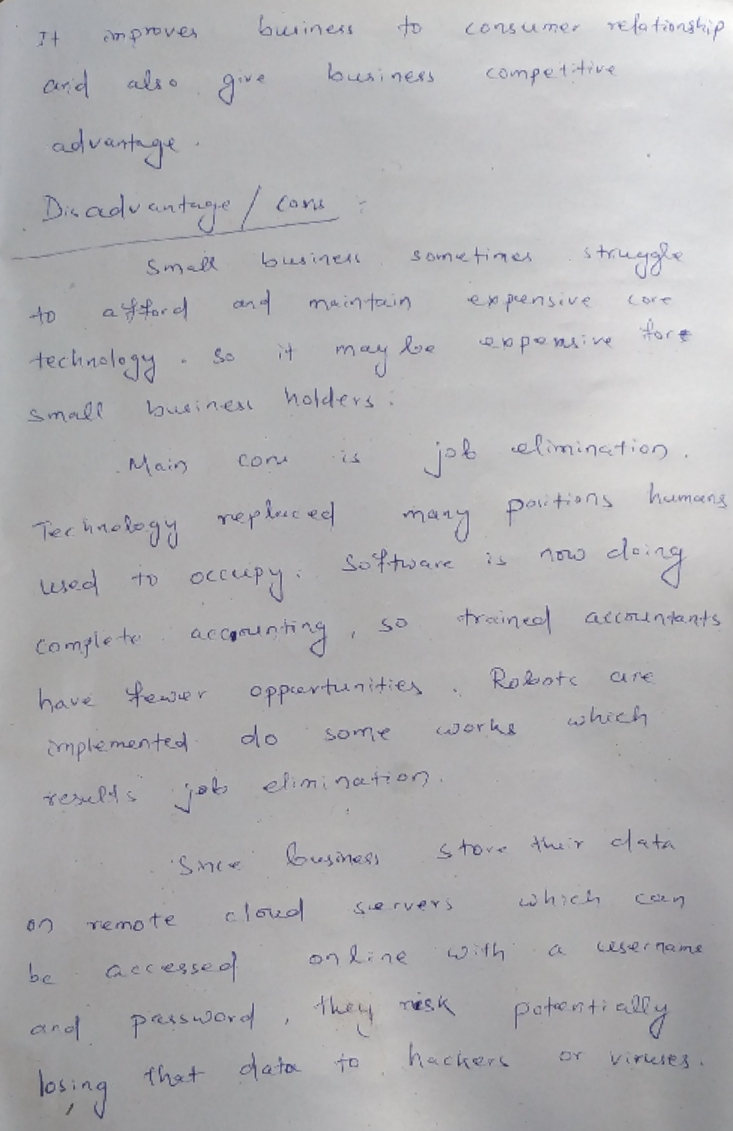 It improves business to consumer relationship
and also give business competitive
advantage.
Disadvantage / cons :
Small business sometimes struggle
to afford and maintain expensive core
technology. So it may be expensive for
small business holders.
Main cons is job elimination.
Technology replaced many positions humans
used to occupy. Software is now doing
complete accounting, so trained accountants
have fewer oppurtunities. Robots are
implemented do some works which
results job elimination.
Since business store their data
on remote cloud servers which can
be accessed online with a username
and password, they risk potentially
losing that data to hackers or viruses.